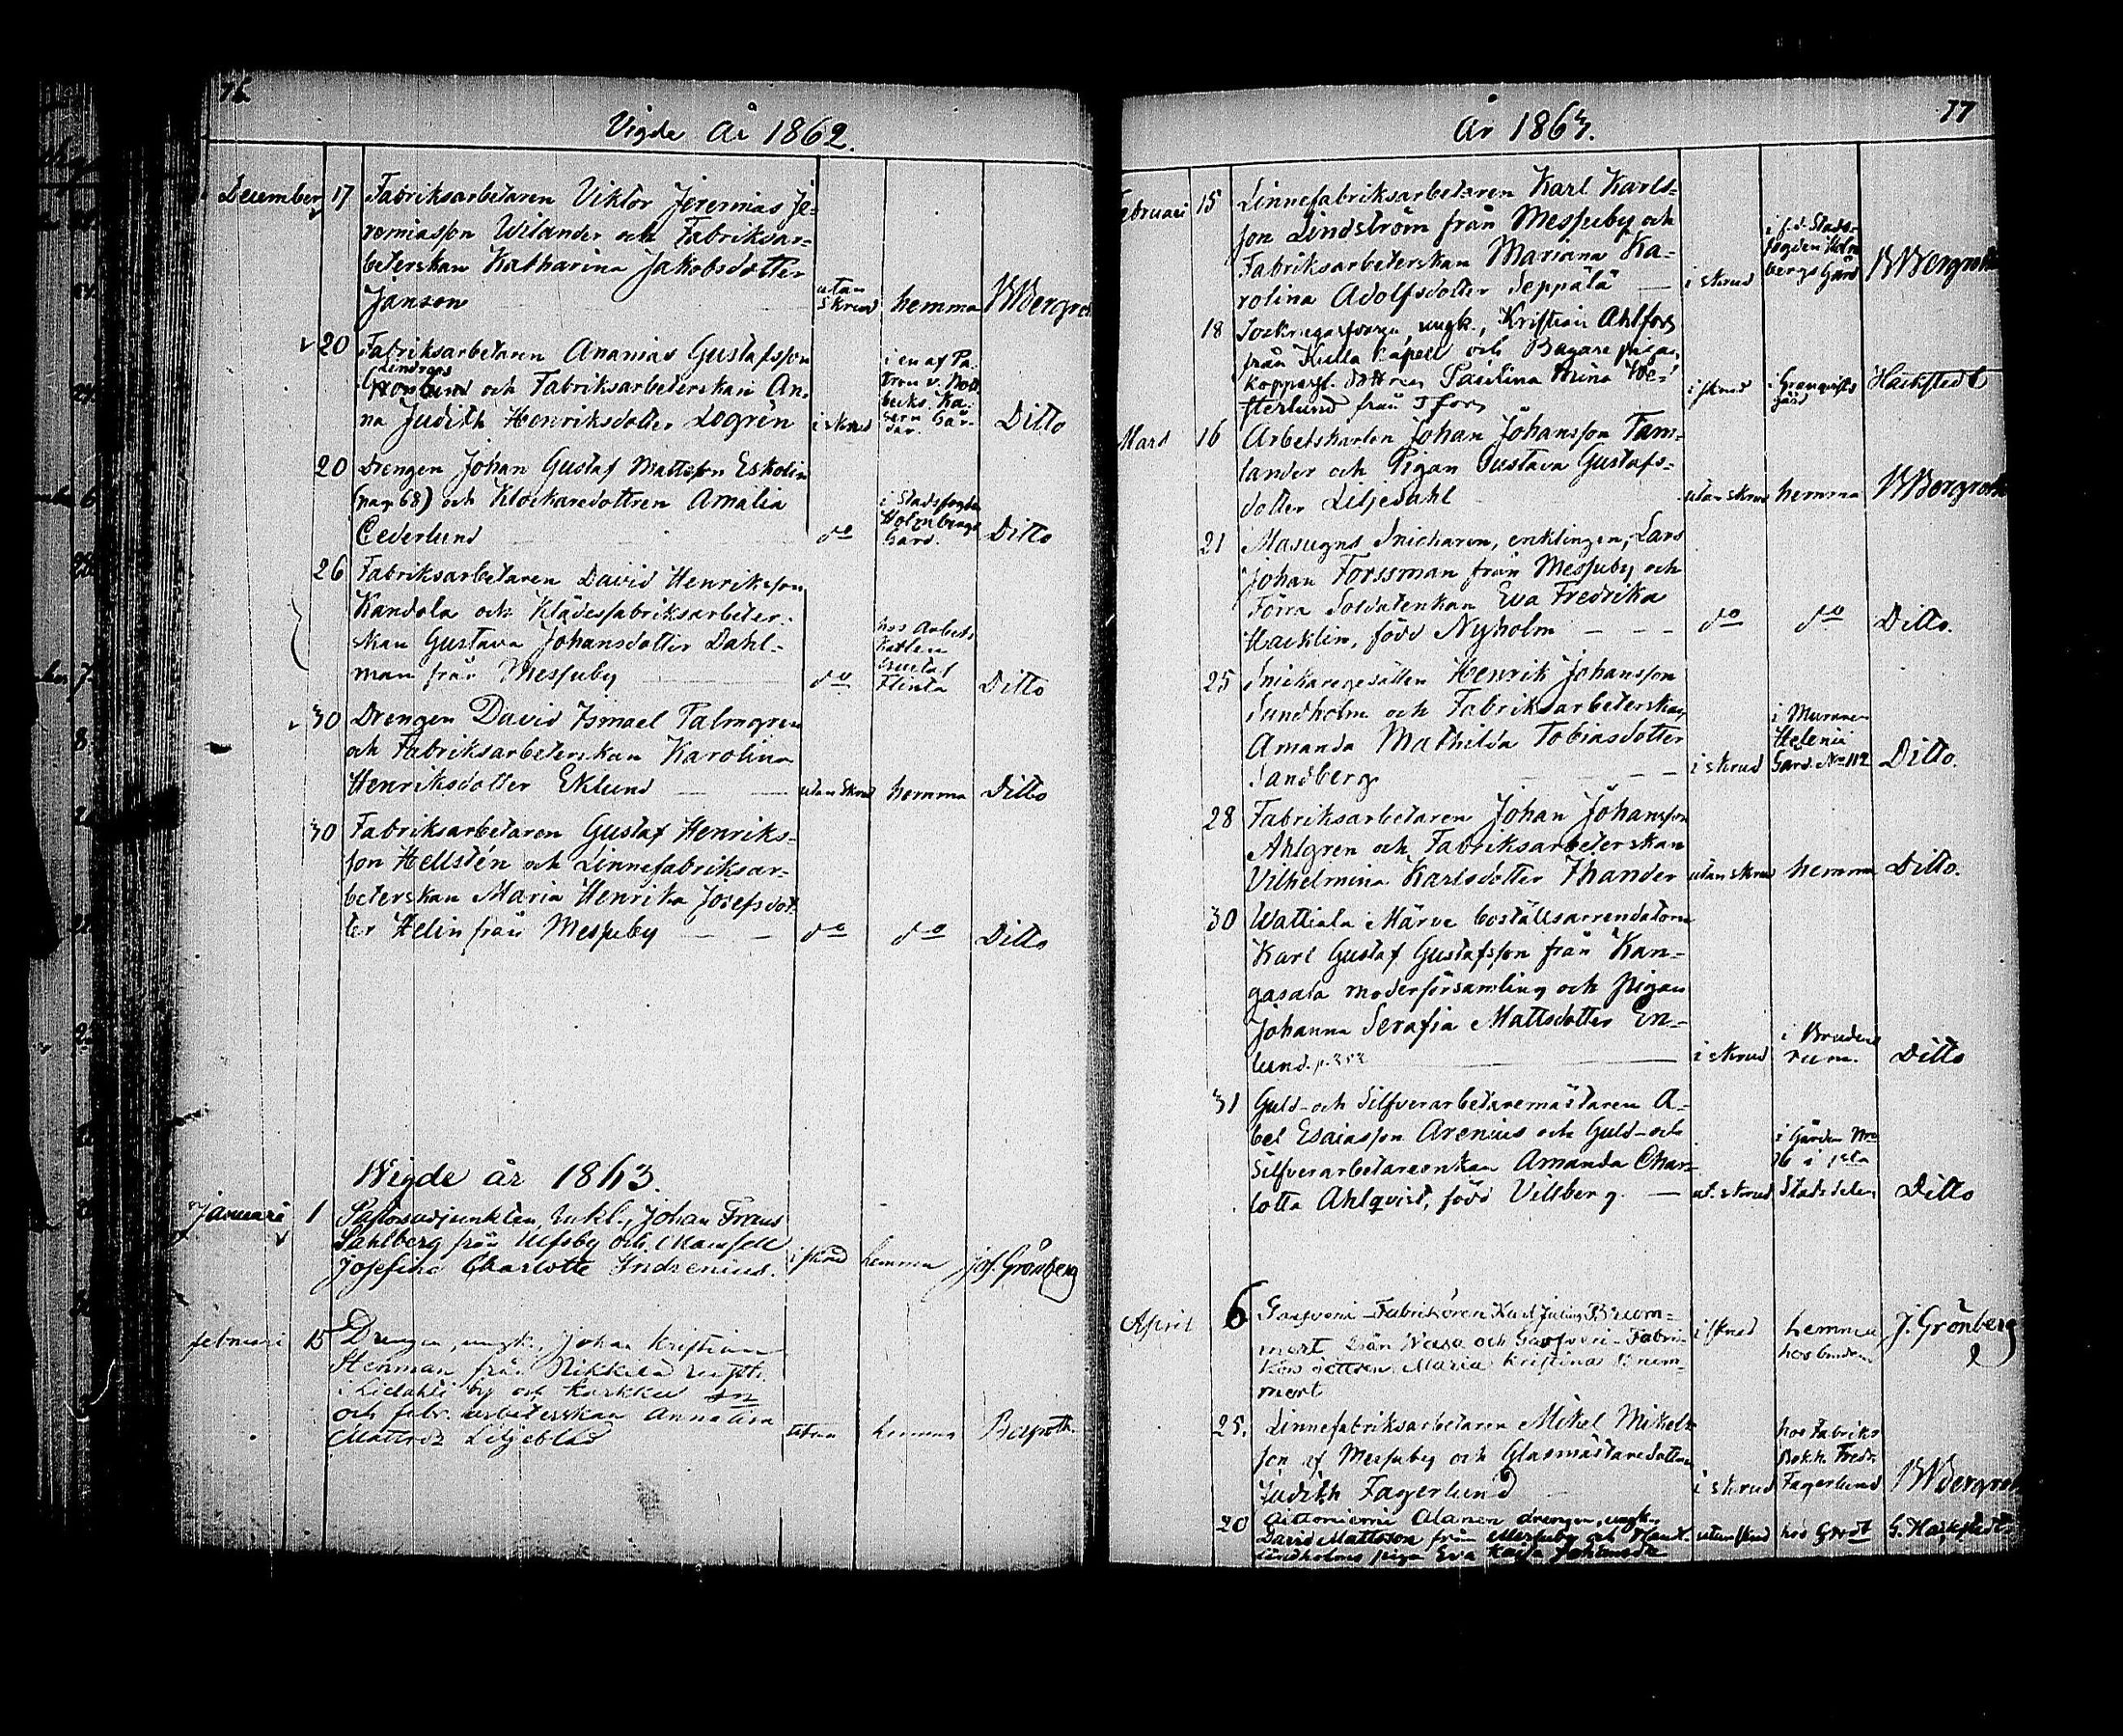 76.
Vigde År 1862.
December 17 Fabriksarbetaren Viktor Jeremias Je-
remiasson Wilander och Fabriksar-
beterskan Katharina Jakobsdotter
Janson utan skrud hemma BWBergroth
20 Fabriksarbetaren Ananias Gustafsson
Lindroos
Grönlund och Fabriksarbeterskan An-
na Judith Henriksdotter Logrén i skrud i en af Patron v. Nottbecks Gårdar. Ditto
20 Drengen Johan Gustaf Mattsson Eskolin
(pag 68) och Klockaredottren Amalia
Cederlund do i Stadsfogden Holmbergs Gård. Ditto
26 Fabriksarbetaren David Henriksson
Kandola och Klädesfabriksarbeter-
skan Gustava Johansdotter Dahl-
man från Messuby do hos Arbets Karlen Gustaf Flinta Ditto
30 Drengen David Ismael Palmgren
och Fabriksarbeterskan Karolina
Henriksdotter Eklund utan skrud hemma Ditto
30 Fabriksarbetaren Gustaf Henriks-
son Hellstén och Linnefabriksar-
beterskan Maria Henrika Josefsdot-
ter Helin från Messuby do do Ditto
Wigde år 1863.
Januari 1 Pastorsadjunkten, enkl., Johan Frans
Sahlberg från Ulfsby och Mamsell
Josefina Charlotte Indrenius. i skrud hemma Jos. Grönberg
februari 15 Drengen, ungk., Johan Kristian
Stenman från Nikkilä
i Liedahls by och Karkku
och fabr. arbeterskan Anna Lisa
Liljeblad utan hemma Bergroth
77
År 1863.
Februari 15 Linnefabriksarbetaren Karl Karls-
son Lindström från Messuby och
Fabriksarbeterskan Mariana Ka-
rolina Adolfsdotter Seppälä i skrud i f.d. Stadsfogden Holmbergs Gård BWBergroth
18 ungk., Kristian Ahlfors
från Kulla kapell och Bagare pigan,
dottren Paulina We-
sterlund från Tfors i skrud i Granqvists gård Hackstedt
Mars 16 Arbetskarlen Johan Johansson Tam-
lander och Pigan Gustava Gustafs-
dotter Liljedahl utan skrud hemma BWBergroth
21 Masugns Snickaren, enklingen, Lars
Johan Forssman från Messuby och
Förra Soldatenkan Eva Fredrika
Hacklin, född Nyholm do do Ditto.
25 Snickaregesällen Henrik Johansson
Sundholm och Fabriksarbeterskan
Amanda Mathilda Tobiasdotter
Sandberg i skrud i Murare Helenii Gård No 112 Ditto.
28 Fabriksarbetaren Johan Johansson
Ahlgren och Fabriksarbeterskan
Vilhelmina Karlsdotter Thander utan skrud hemma Ditto.
30 Wattiala Märve boställsarrendatorn
Karl Gustaf Gustafsson från Kan-
gasala moderförsamling och Pigan
Johanna Serafia Mattsdotter En-
lund. i skrud i Brudens rum. Ditto
31 Guld- och Silfverarbetaremästaren A-
bel Esaiasson Arenius och Guld- och
Silfverarbetareenkan Amanda Char-
lotta Ahlqvist, född Villberg. ut. skrud i Gården No 76 i 1sta Stadsdelen Ditto
April 6 Garfveri-Fabrikören Karl Julius Brum-
mert från Wasa och Garfveri-Fabri-
körsdottren Maria Kristina Brum-
mert i skrud hemma hos bruden J. Grönberg
25. Linnefabriksarbetaren Mikel Mikels-
son af Messuby och Glasmästaredottren
Judith Fagerlund i skrud hos Fabriks Bokh. Fredr. Fagerlund BWBergroth
20 Aittoniemi Alanen drengen, ungk.,
David Mattsson från Messuby och Handl.
Lindholms piga Eva Kaisa Johansdr utan skrud hos Grodt G. Hackstedt